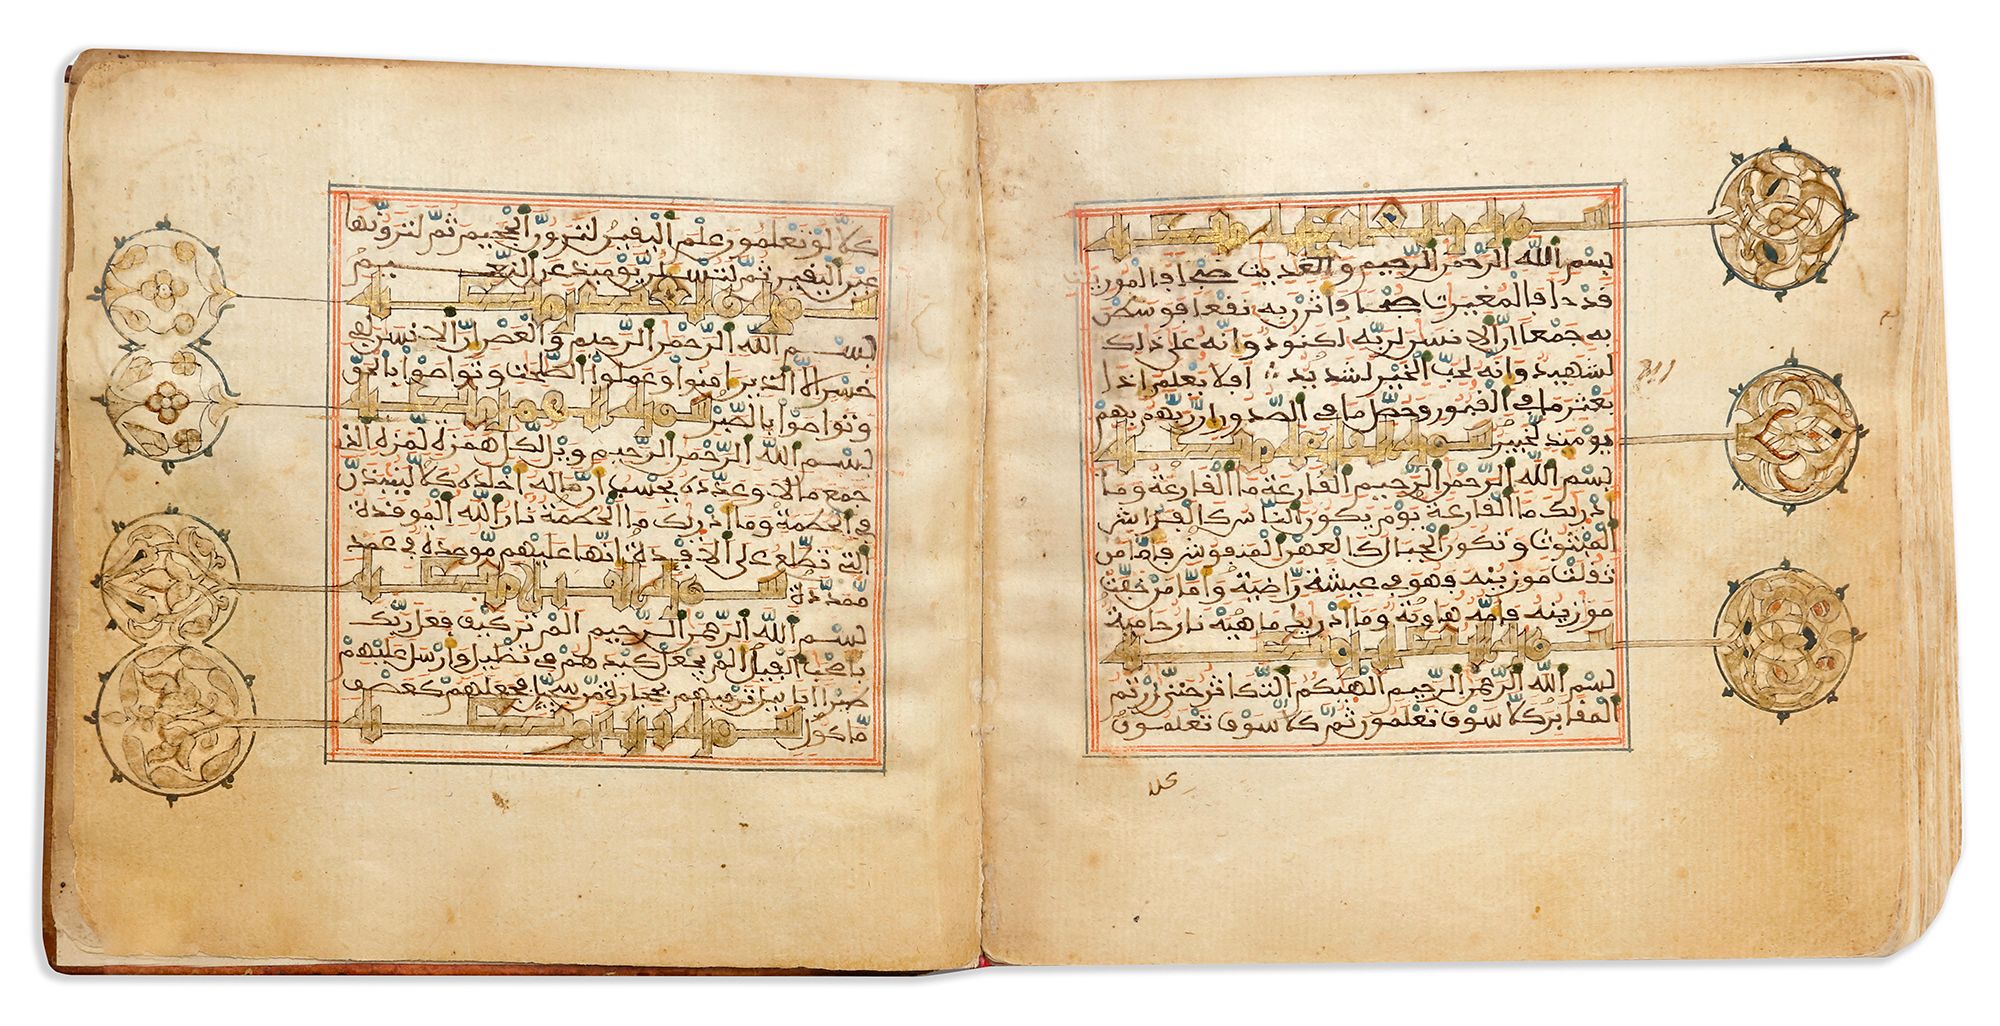 سورة والعديت مكية
بسم الله الرحمن الرحيم والعديت ضبحا فالموريت
قدحا فالمغيرت صبحا فاثرن به نقعا فوسطن
به جمعا ان الانسن لربه لكنود وانه على ذلك
لشهيد وانه لحب الخير لشديد افلا يعلم اذا
بعثر ما في القبور وحصل ما في الصدور ان ربهم بهم
يومئذ لخبير سورة القارعة مكية
بسم الله الرحمن الرحيم القارعة ما القارعة وما
ادريك ما القارعة يوم يكون الناس كالفراش
المبثوث وتكون الجبال كالعهن المنفوش فاما من
ثقلت موزينه فهو في عيشة راضية واما من خفت
موزينه فامه هاوية وما ادريك ما هيه نار حامية
سورة التكاثر مكية
بسم الله الرحمن الرحيم الهيكم التكاثر حتى زرتم
المقابر كلا سوف تعلمون ثم كلا سوف تعلمون
كلا
كلا لو تعلمون علم اليقين لترون الجحيم ثم لترونها
عين اليقين ثم لتسئلن يومئذ عن النعيم
سورة والعصر مكية
بسم الله الرحمن الرحيم والعصر ان الانسن لفي
خسر الا الذين امنوا وعملوا الصلحت وتواصوا بالحق
وتواصوا بالصبر سورة الهمزة مكية
بسم الله الرحمن الرحيم ويل لكل همزة لمزة الذي
جمع مالا وعدده يحسب ان ماله اخلده كلا لينبذن
في الحطمة وما ادريك ما الحطمة نار الله الموقدة
التي تطلع على الافـدة انها عليهم موصدة في عمد
ممددة سورة الفيل مكية
بسم الله الرحمن الرحيم الم تر كيف فعل ربك
باصحب الفيل الم يجعل كيدهم في تضليل وارسل عليهم
طيرا ابابيل ترميهم بحجارة من سجيل فجعلهم كعصف
ماكول سورة قريش مكية